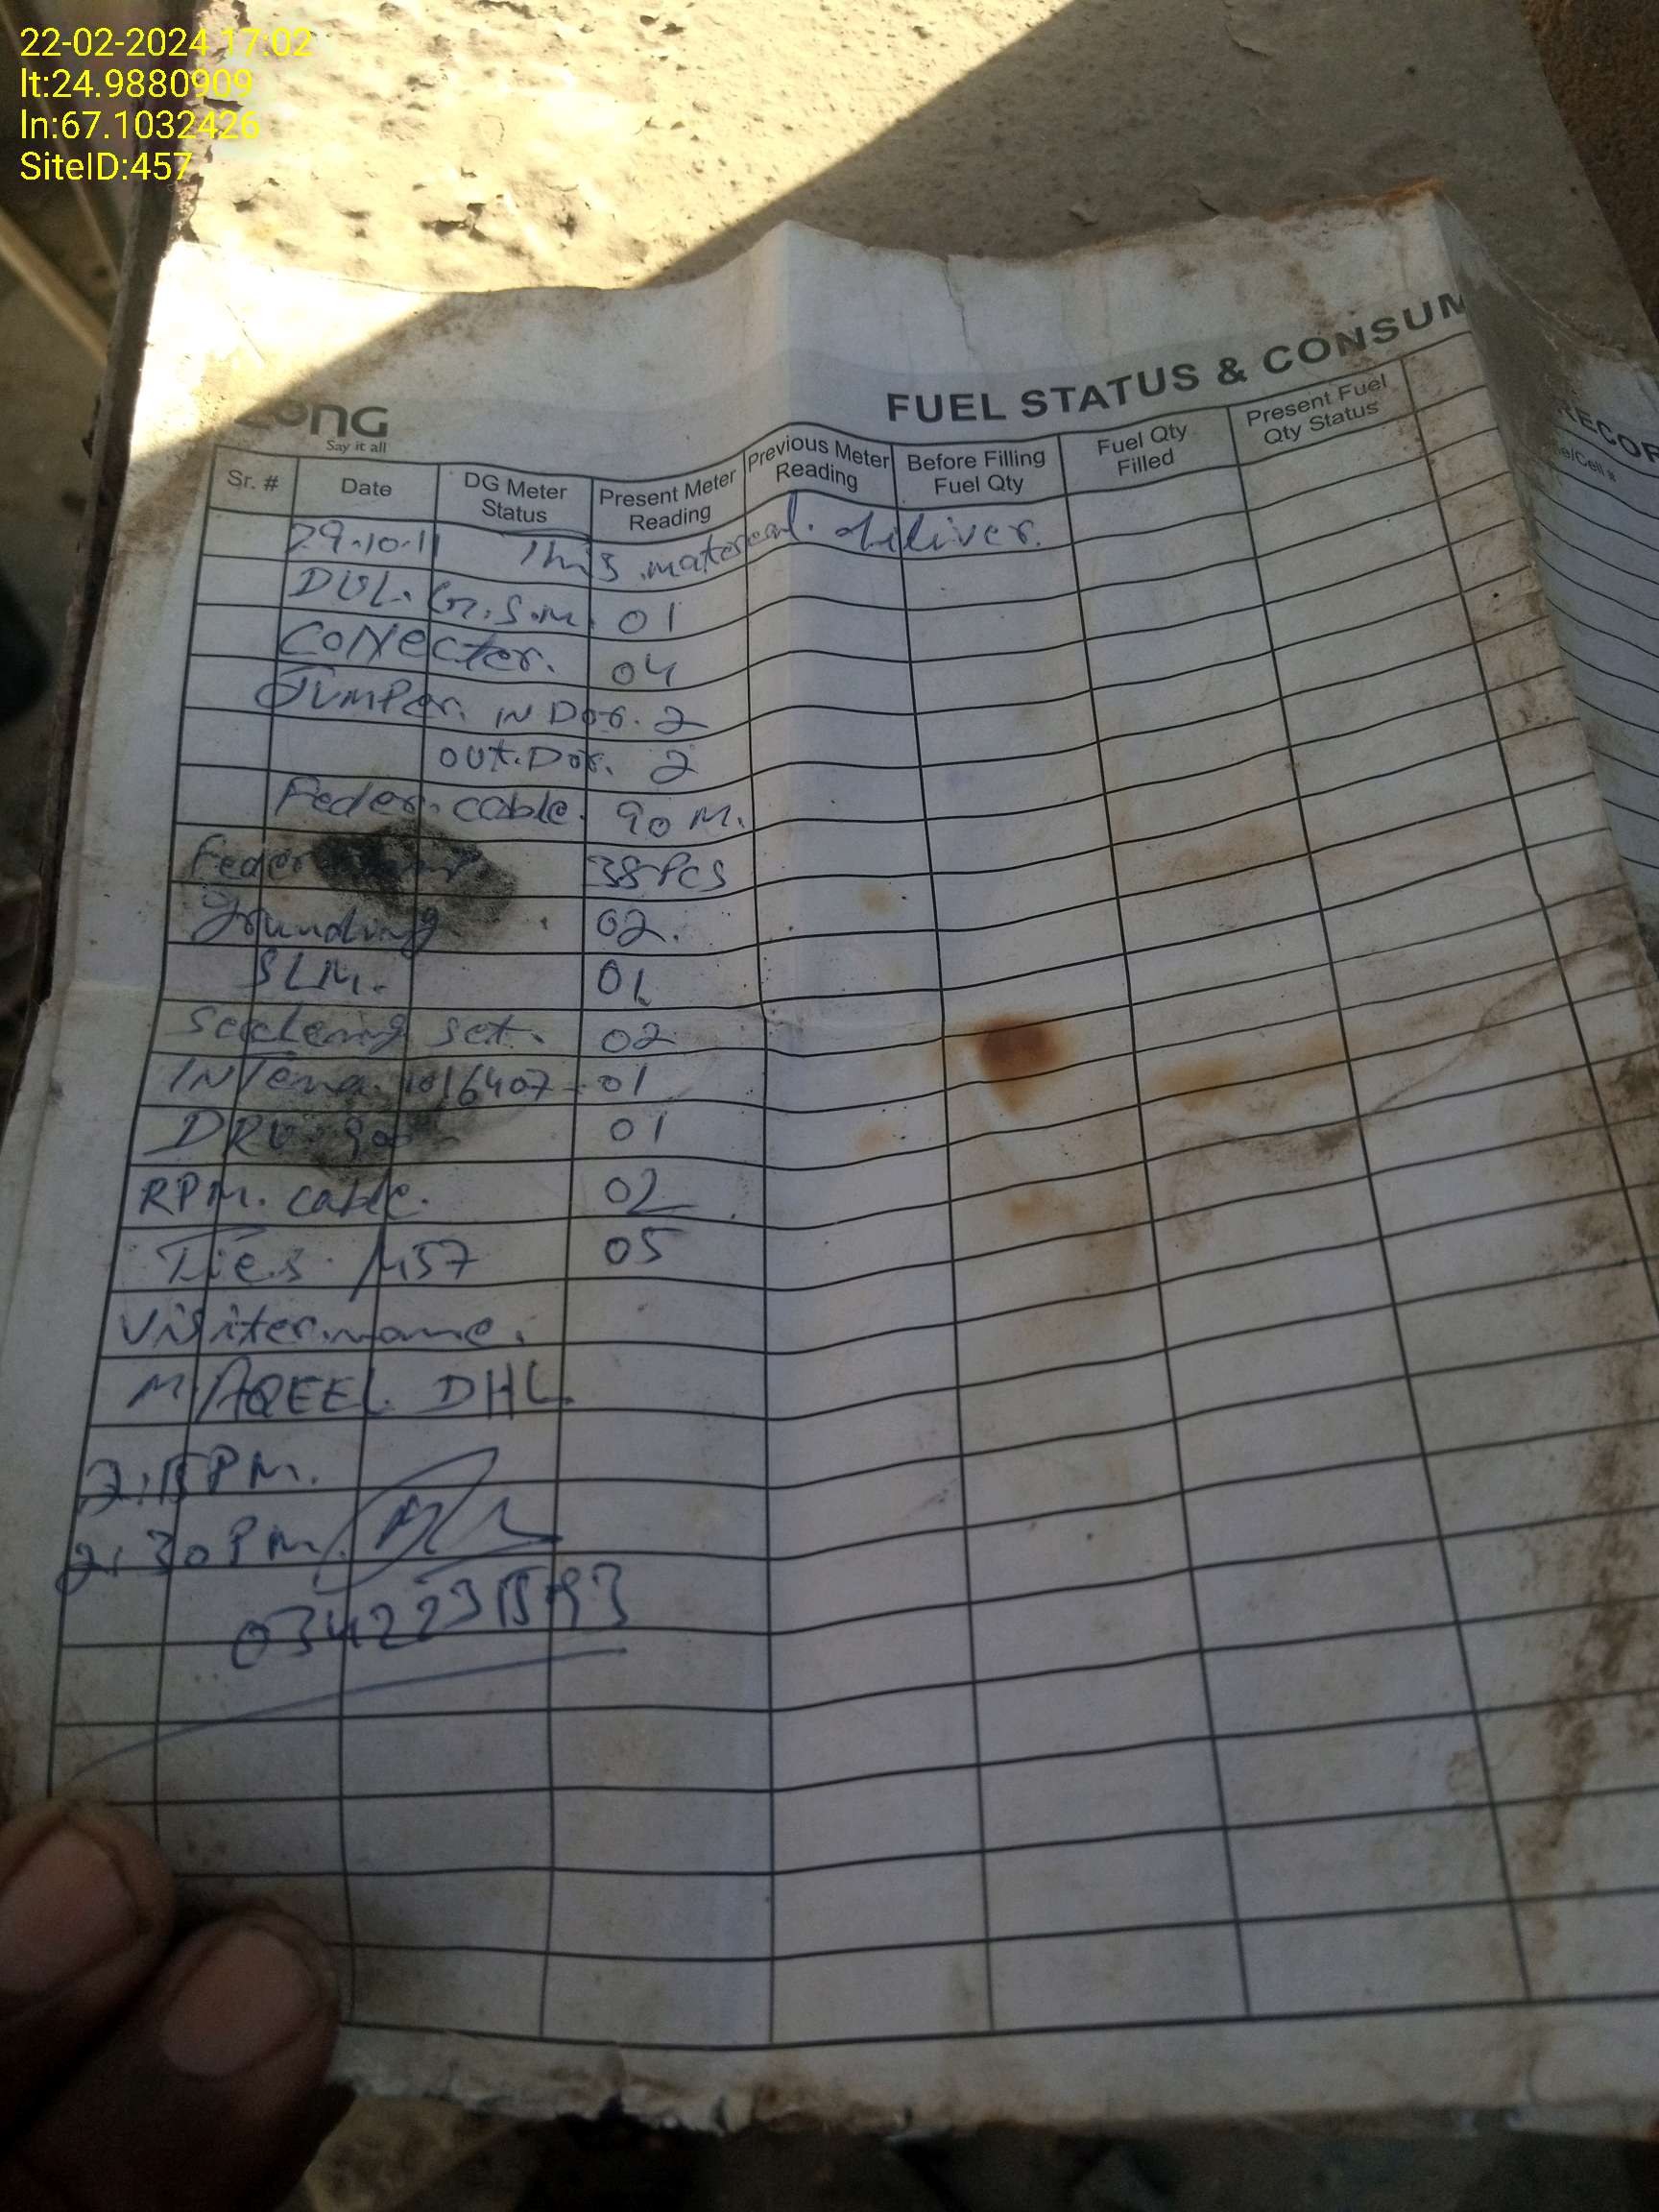 22-02-2024 17:02
lt:24.9880909
ln:67.1032426
SiteID:457
ZONG
Say it all
FUEL STATUS & CONSUM
RECOR
Sr. # Date DG Meter Status Present Meter Reading Previous Meter Reading Before Filling Fuel Qty Fuel Qty Filled Present Fuel Qty Status
29.10.11 This matereal. deliver.
G.S.M. 01
Connecter. 04
Jumper. IN Dor. 2
out.Dor. 2
Feder. cable. 90 M.
Feder 38 Pcs
grounding 02.
SLM. 01
set. 02
INTena. 01
DRU 900 01
RPM. cable. 02
Ties. M57 05
Visiter.name.
M AQEEL DHL
2:15 PM.
2:30 PM.